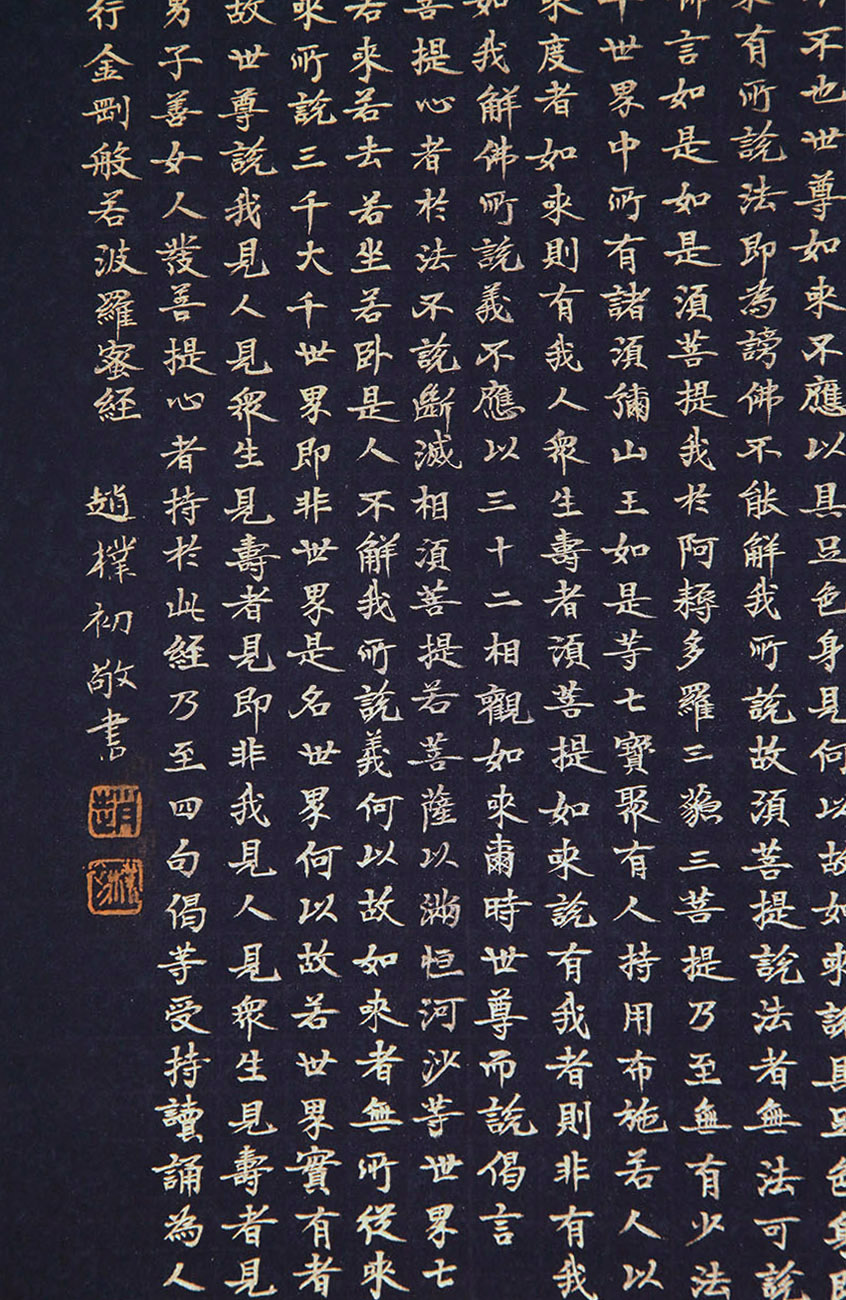 不也世尊如来不應以具足色身見何以故如来說具足色身即
来有所說法即為謗佛不能解我所說故須菩提說法者無法可說
佛言如是如是須菩提我於阿耨多羅三藐三菩提乃至無有少法
千世界中所有諸須彌山王如是等七寶聚有人持用布施若人以
来度者如来則有我人衆生壽者須菩提如来說有我者則非有我
如我解佛所說義不應以三十二相觀如来爾時世尊而說偈言
菩提心者於法不說斷滅相須菩提若菩薩以滿恒河沙等世界七
若来若去若坐若卧是人不解我所說義何以故如来者無所從来
来所說三千大千世界即非世界是名世界何以故若世界實有者
故世尊說我見人見衆生見壽者見即非我見人見衆生見壽者見
男子善女人發菩提心者持於此經乃至四句偈等受持讀誦為人
行金剛般若波羅蜜經 趙樸初敬書
趙